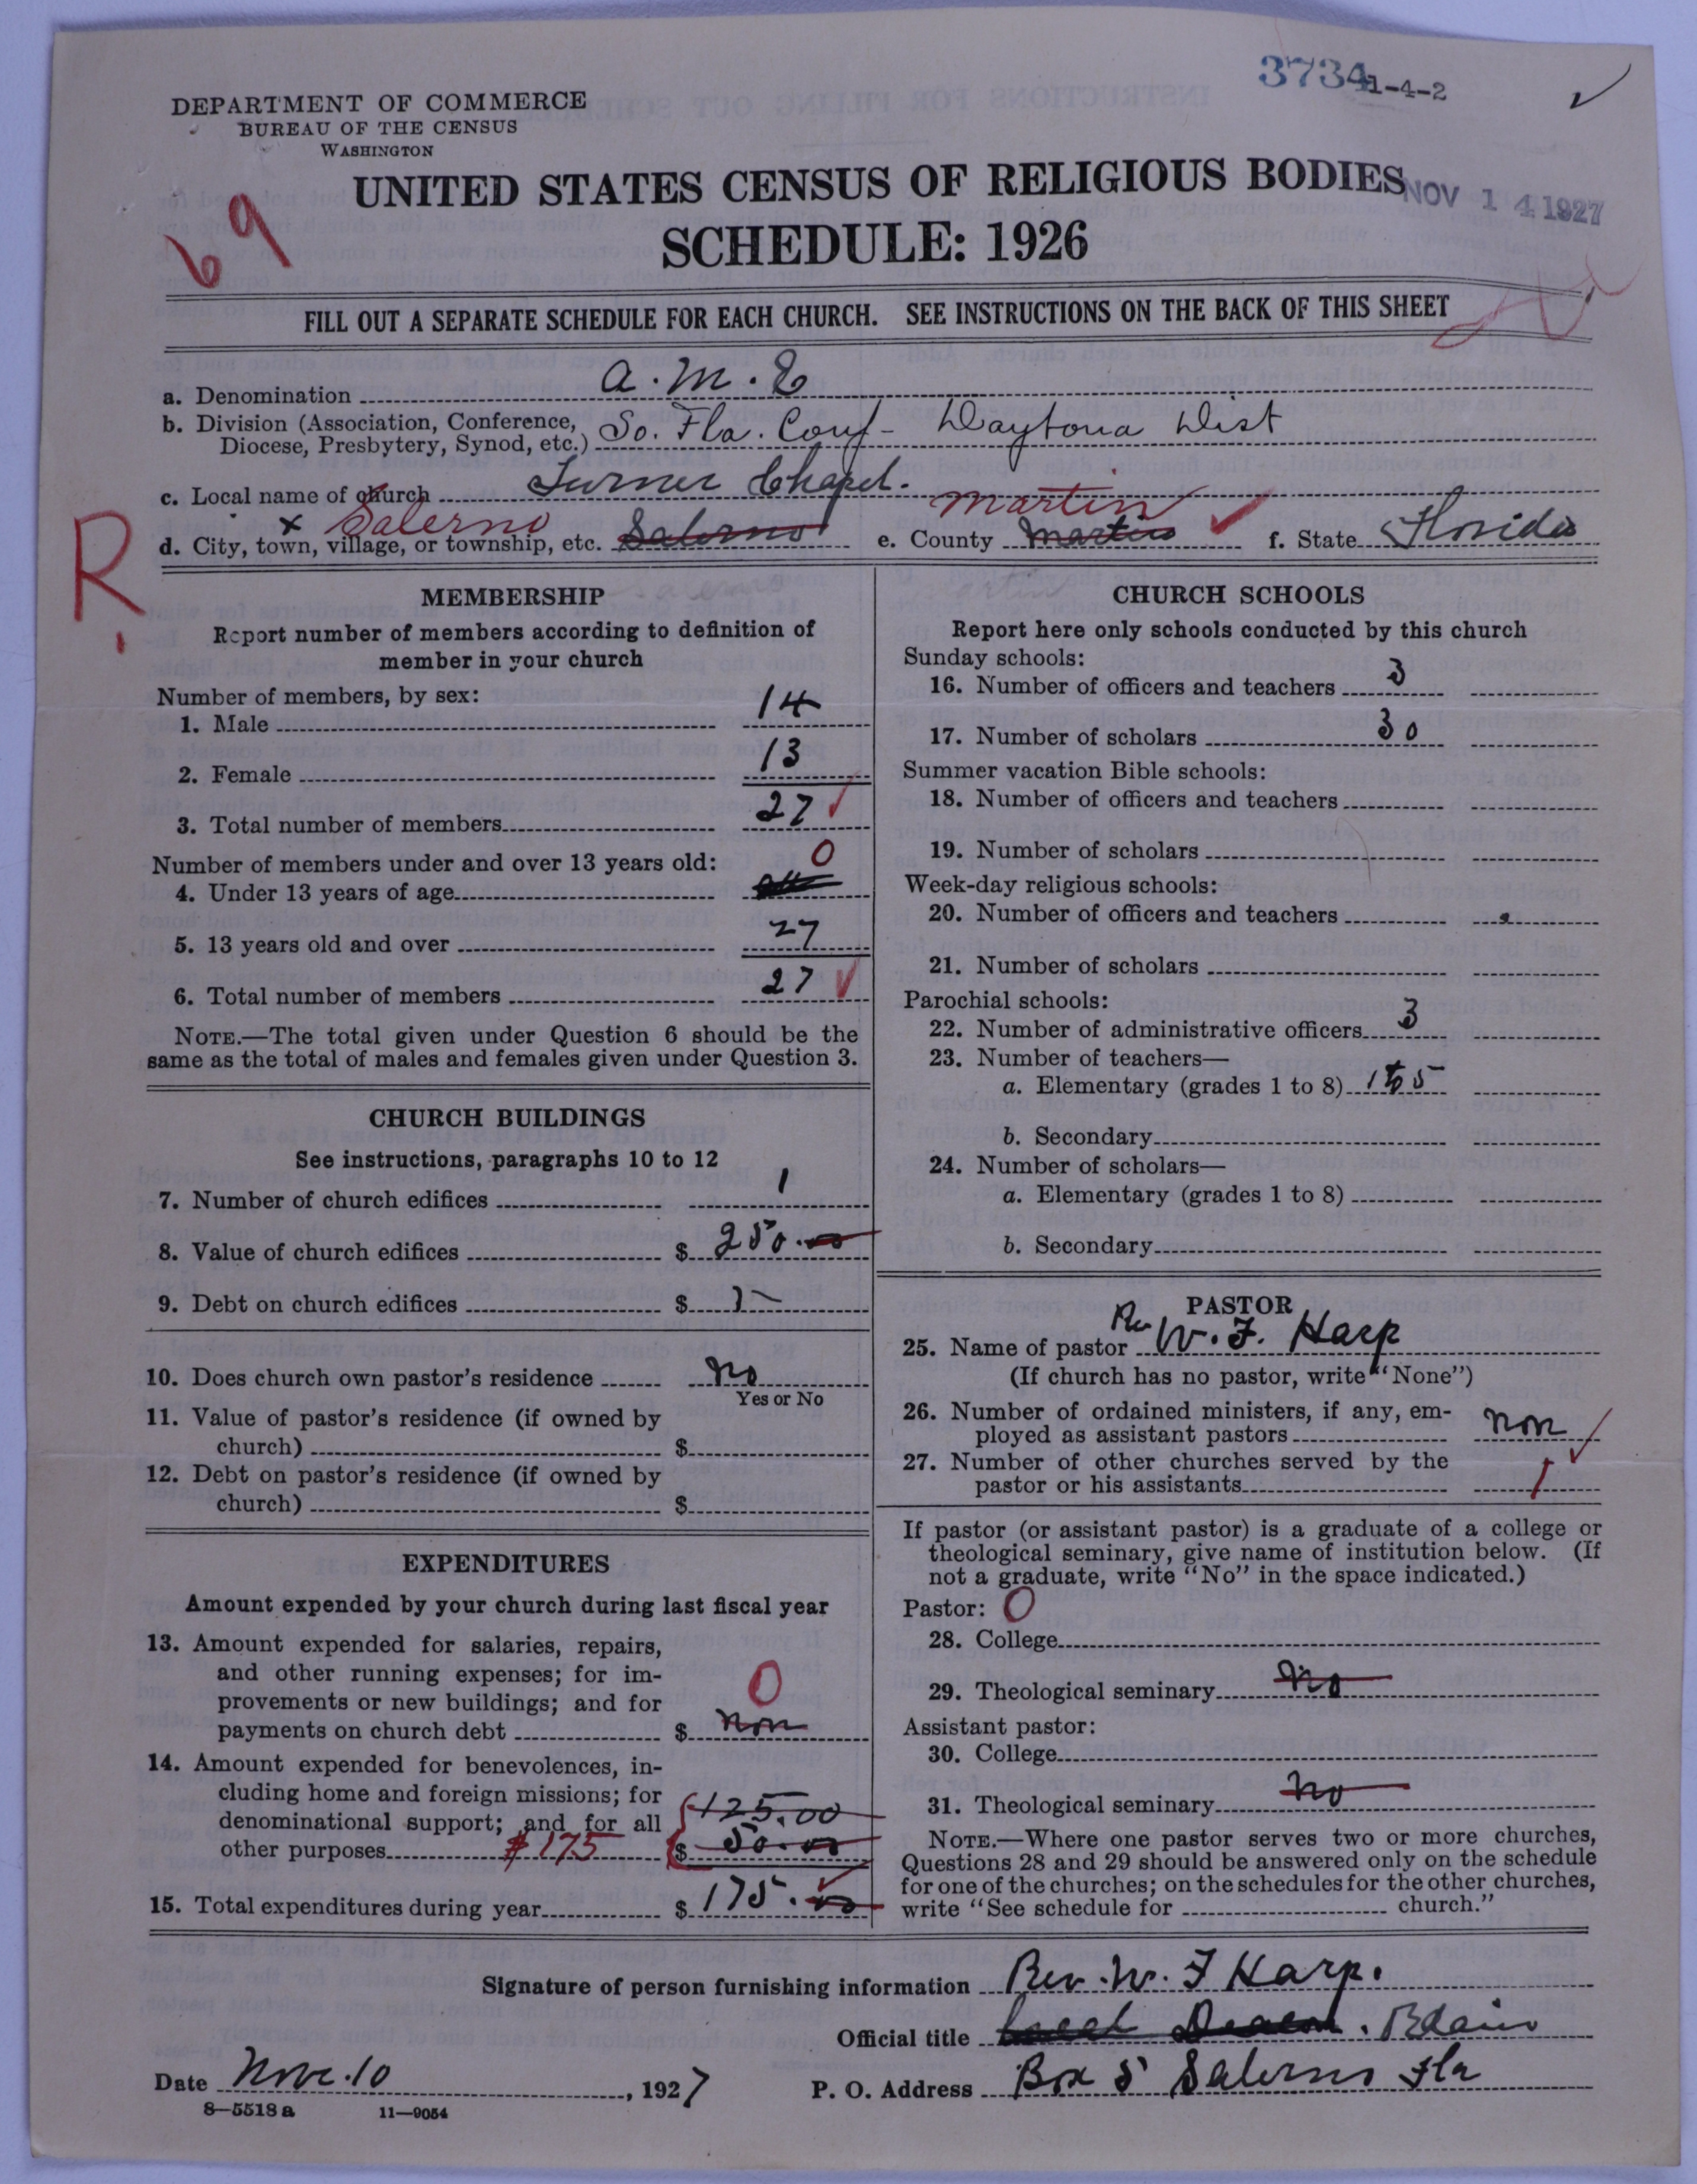 3734 1-4-2
DEPARTMENT OF COMMERCE
BUREAU OF THE CENSUS
WASHINGTON
UNITED STATES CENSUS OF RELIGIOUS BODIES
NOV 14 1927
SCHEDULE: 1926
69
FILL OUT A SEPARATE SCHEDULE FOR EACH CHURCH. SEE INSTRUCTIONS ON THE BACK OF THIS SHEET
a. Denomination A. M. E
b. Division (Association, Conference, Diocese, Presbytery, Synod, etc.) So. Fla. Conf - Daytona Dist
c. Local name of church Turner Chapel.
x Salerno martin
d. City, town, village, or township, etc. Salerno e. County Martin f. State Florida
R
MEMBERSHIP
Report number of members according to definition of
member in your church
Number of members, by sex:
1. Male 14
2. Female 13
3. Total number of members 27
Number of members under and over 13 years old: 0
4. Under 13 years of age
5. 13 years old and over 27
6. Total number of members 27
NOTE.—The total given under Question 6 should be the
same as the total of males and females given under Question 3.
CHURCH BUILDINGS
See instructions, paragraphs 10 to 12
7. Number of church edifices 1
8. Value of church edifices $ 250.00
9. Debt on church edifices $
10. Does church own pastor's residence No
Yes or No
11. Value of pastor's residence (if owned by
church) $
12. Debt on pastor's residence (if owned by
church) $
EXPENDITURES
Amount expended by your church during last fiscal year
13. Amount expended for salaries, repairs,
and other running expenses; for im-
provements or new buildings; and for 0
payments on church debt $ non
14. Amount expended for benevolences, in-
cluding home and foreign missions; for
denominational support; and for all 125.00
other purposes $175 $ 50.00
15. Total expenditures during year $ 175.00
CHURCH SCHOOLS
Report here only schools conducted by this church
Sunday schools:
16. Number of officers and teachers 3
17. Number of scholars 30
Summer vacation Bible schools:
18. Number of officers and teachers
19. Number of scholars
Week-day religious schools:
20. Number of officers and teachers
21. Number of scholars
Parochial schools:
22. Number of administrative officers 3
23. Number of teachers—
a. Elementary (grades 1 to 8) 1 to 5
b. Secondary
24. Number of scholars—
a. Elementary (grades 1 to 8)
b. Secondary
PASTOR
25. Name of pastor Rev W. F. Harp
(If church has no pastor, write "None")
26. Number of ordained ministers, if any, em-
ployed as assistant pastors non
27. Number of other churches served by the
pastor or his assistants 1
If pastor (or assistant pastor) is a graduate of a college or
theological seminary, give name of institution below. (If
not a graduate, write "No" in the space indicated.)
Pastor: 0
28. College
29. Theological seminary No
Assistant pastor:
30. College
31. Theological seminary No
NOTE.—Where one pastor serves two or more churches,
Questions 28 and 29 should be answered only on the schedule
for one of the churches; on the schedules for the other churches,
write "See schedule for church."
Signature of person furnishing information Rev. W. F Harp.
Official title Local Deacon.
Date Nov. 10, 1927 P. O. Address Box 5 Salerno Fla
8—5518 a 11—9054